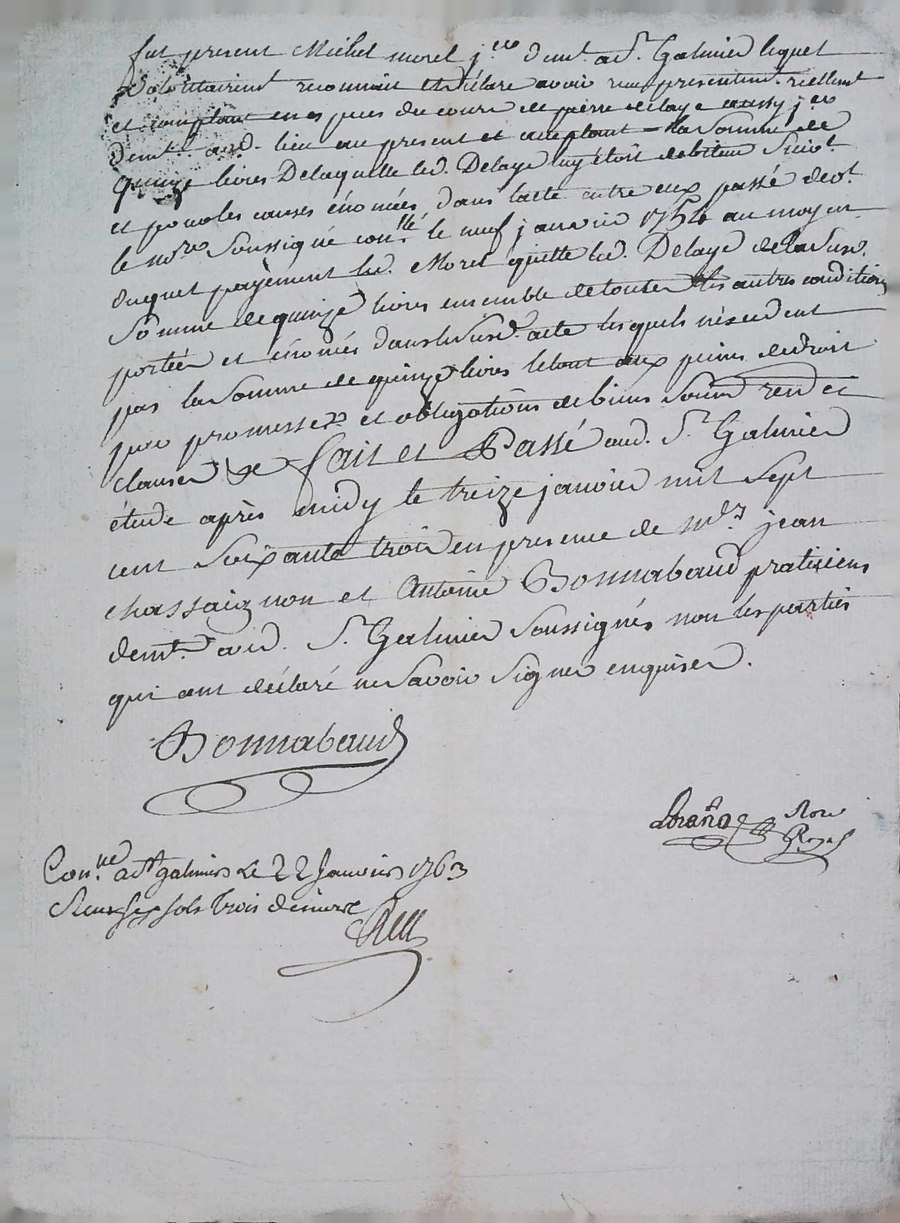 fut present Michel morel j.er demt. a St. Galmier lequel
volontairemt reconnait et déclare avoir reçu presentemt. reellemt
et comptant en espèces du cours de pierre delaye aussy j.er
demt. aud. lieu icy present et acceptant la Somme de
quinze livres De laquelle led. Delaye luy étoit debiteur Suivt.
et pour les causes énoncées dans lacte entre eux passé devt.
le nore Soussigné conllé le neuf janvier 1754 au moyen
duquel payement led. Morel quitte led. Delaye de la Susd.
Somme de quinze livres ensemble de toutes les autres conditions
portées et énoncés dans le Susd. acte lesquels nexcedent
pas la Somme de quinze livres le tout aux peines de droit
par promesses et obligations de biens Soumi renon et
clauses &c fait et Passé aud. St. Galmier
étude après midy le treize janvier mil sept
cent Soixante trois en presence de mrs jean
chassaignon et Antoine Bonnabaud praticiens
demt. aud. St. Galmier Soussignés non les parties
qui ont déclaré ne Savoir Signer enquises.
Bonnabaud
nore
Royal
Con.lle a St galmier Le 22 Janvier 1763
Sols trois deniers